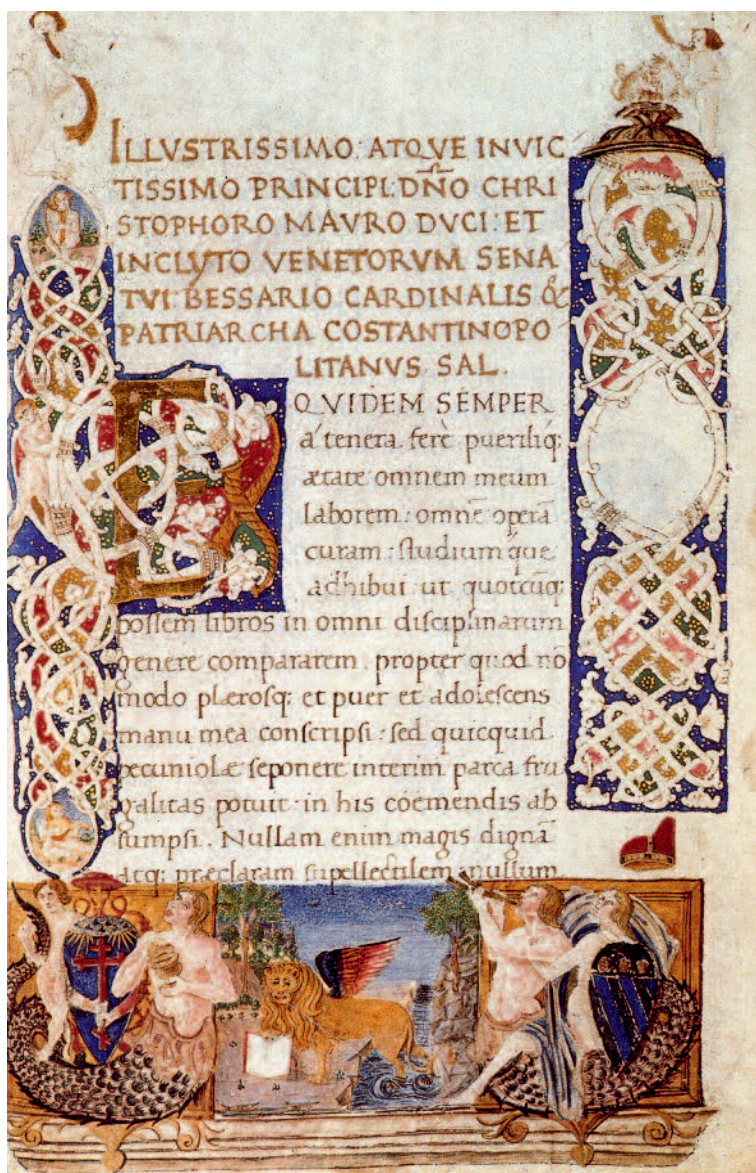 ILLVSTRISSIMO: ATQVE INVIC
TISSIMO PRINCIPI: DÑO CHRI
STOPHORO MAVRO DVCI: ET
INCLYTO VENETORVM SENA
TVI: BESSARIO CARDINALIS &
PATRIARCHA COSTANTINOPO
LITANVS SAL.
E QVIDEM SEMPER
á tenera ferè puerilíq;
ætate omnem meum
laborem: omnē operā
curam: studium que
adhibui ut quotcūq;
possem libros in omni disciplinarum
genere compararem. propter quod nō
modo plærosq; et puer et adolescens
manu mea conscripsi: sed quicquid
pecuniolæ seponere interim parca fru
galitas potuit: in his coemendis ab
sumpsi. Nullam enim magis dignā
atq; præclaram supellectilem: nullum